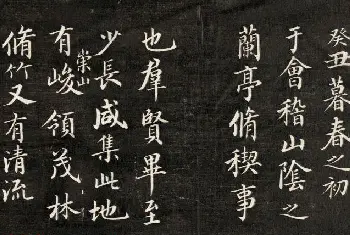 癸丑暮春之初
于會稽山陰之
蘭亭脩稧事
也羣賢畢至
少長咸集此地
有崇山峻領茂林
脩竹又有清流